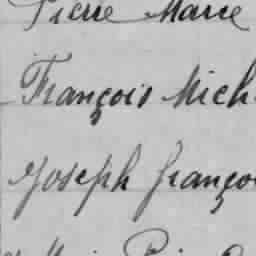 Pierre Marie
François Mich
Joseph françoi